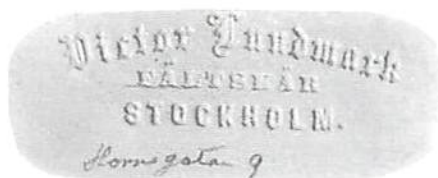 Victor Lundmark
FÄLTSKÄR
STOCKHOLM.
Hornsgatan 9